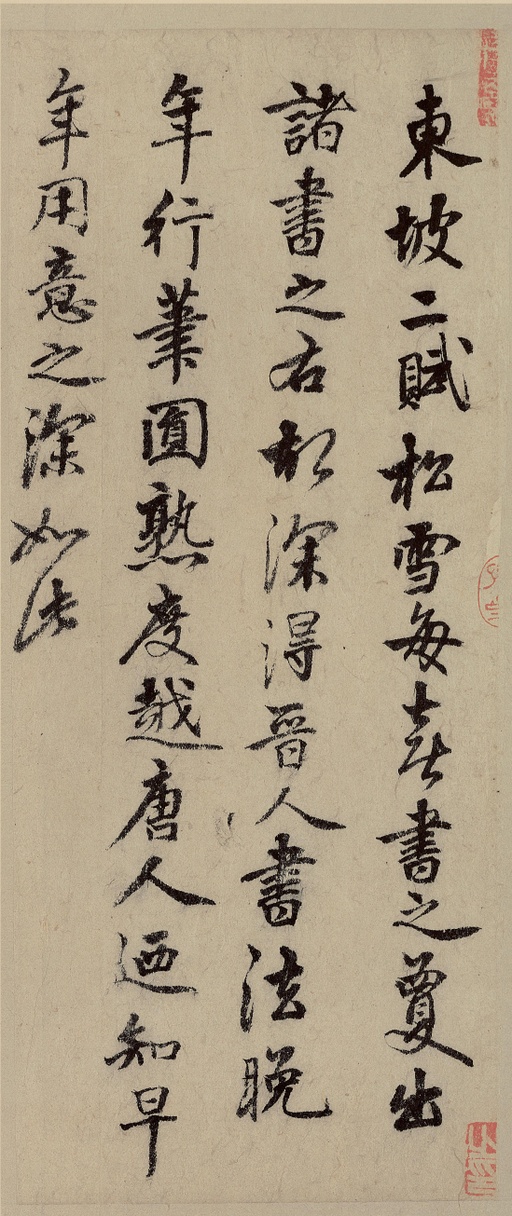 東坡二賦松雪每喜書之敻出
諸書之右於深得晉人書法晚
年行筆圓熟度越唐人迺知早
年用意之深如法